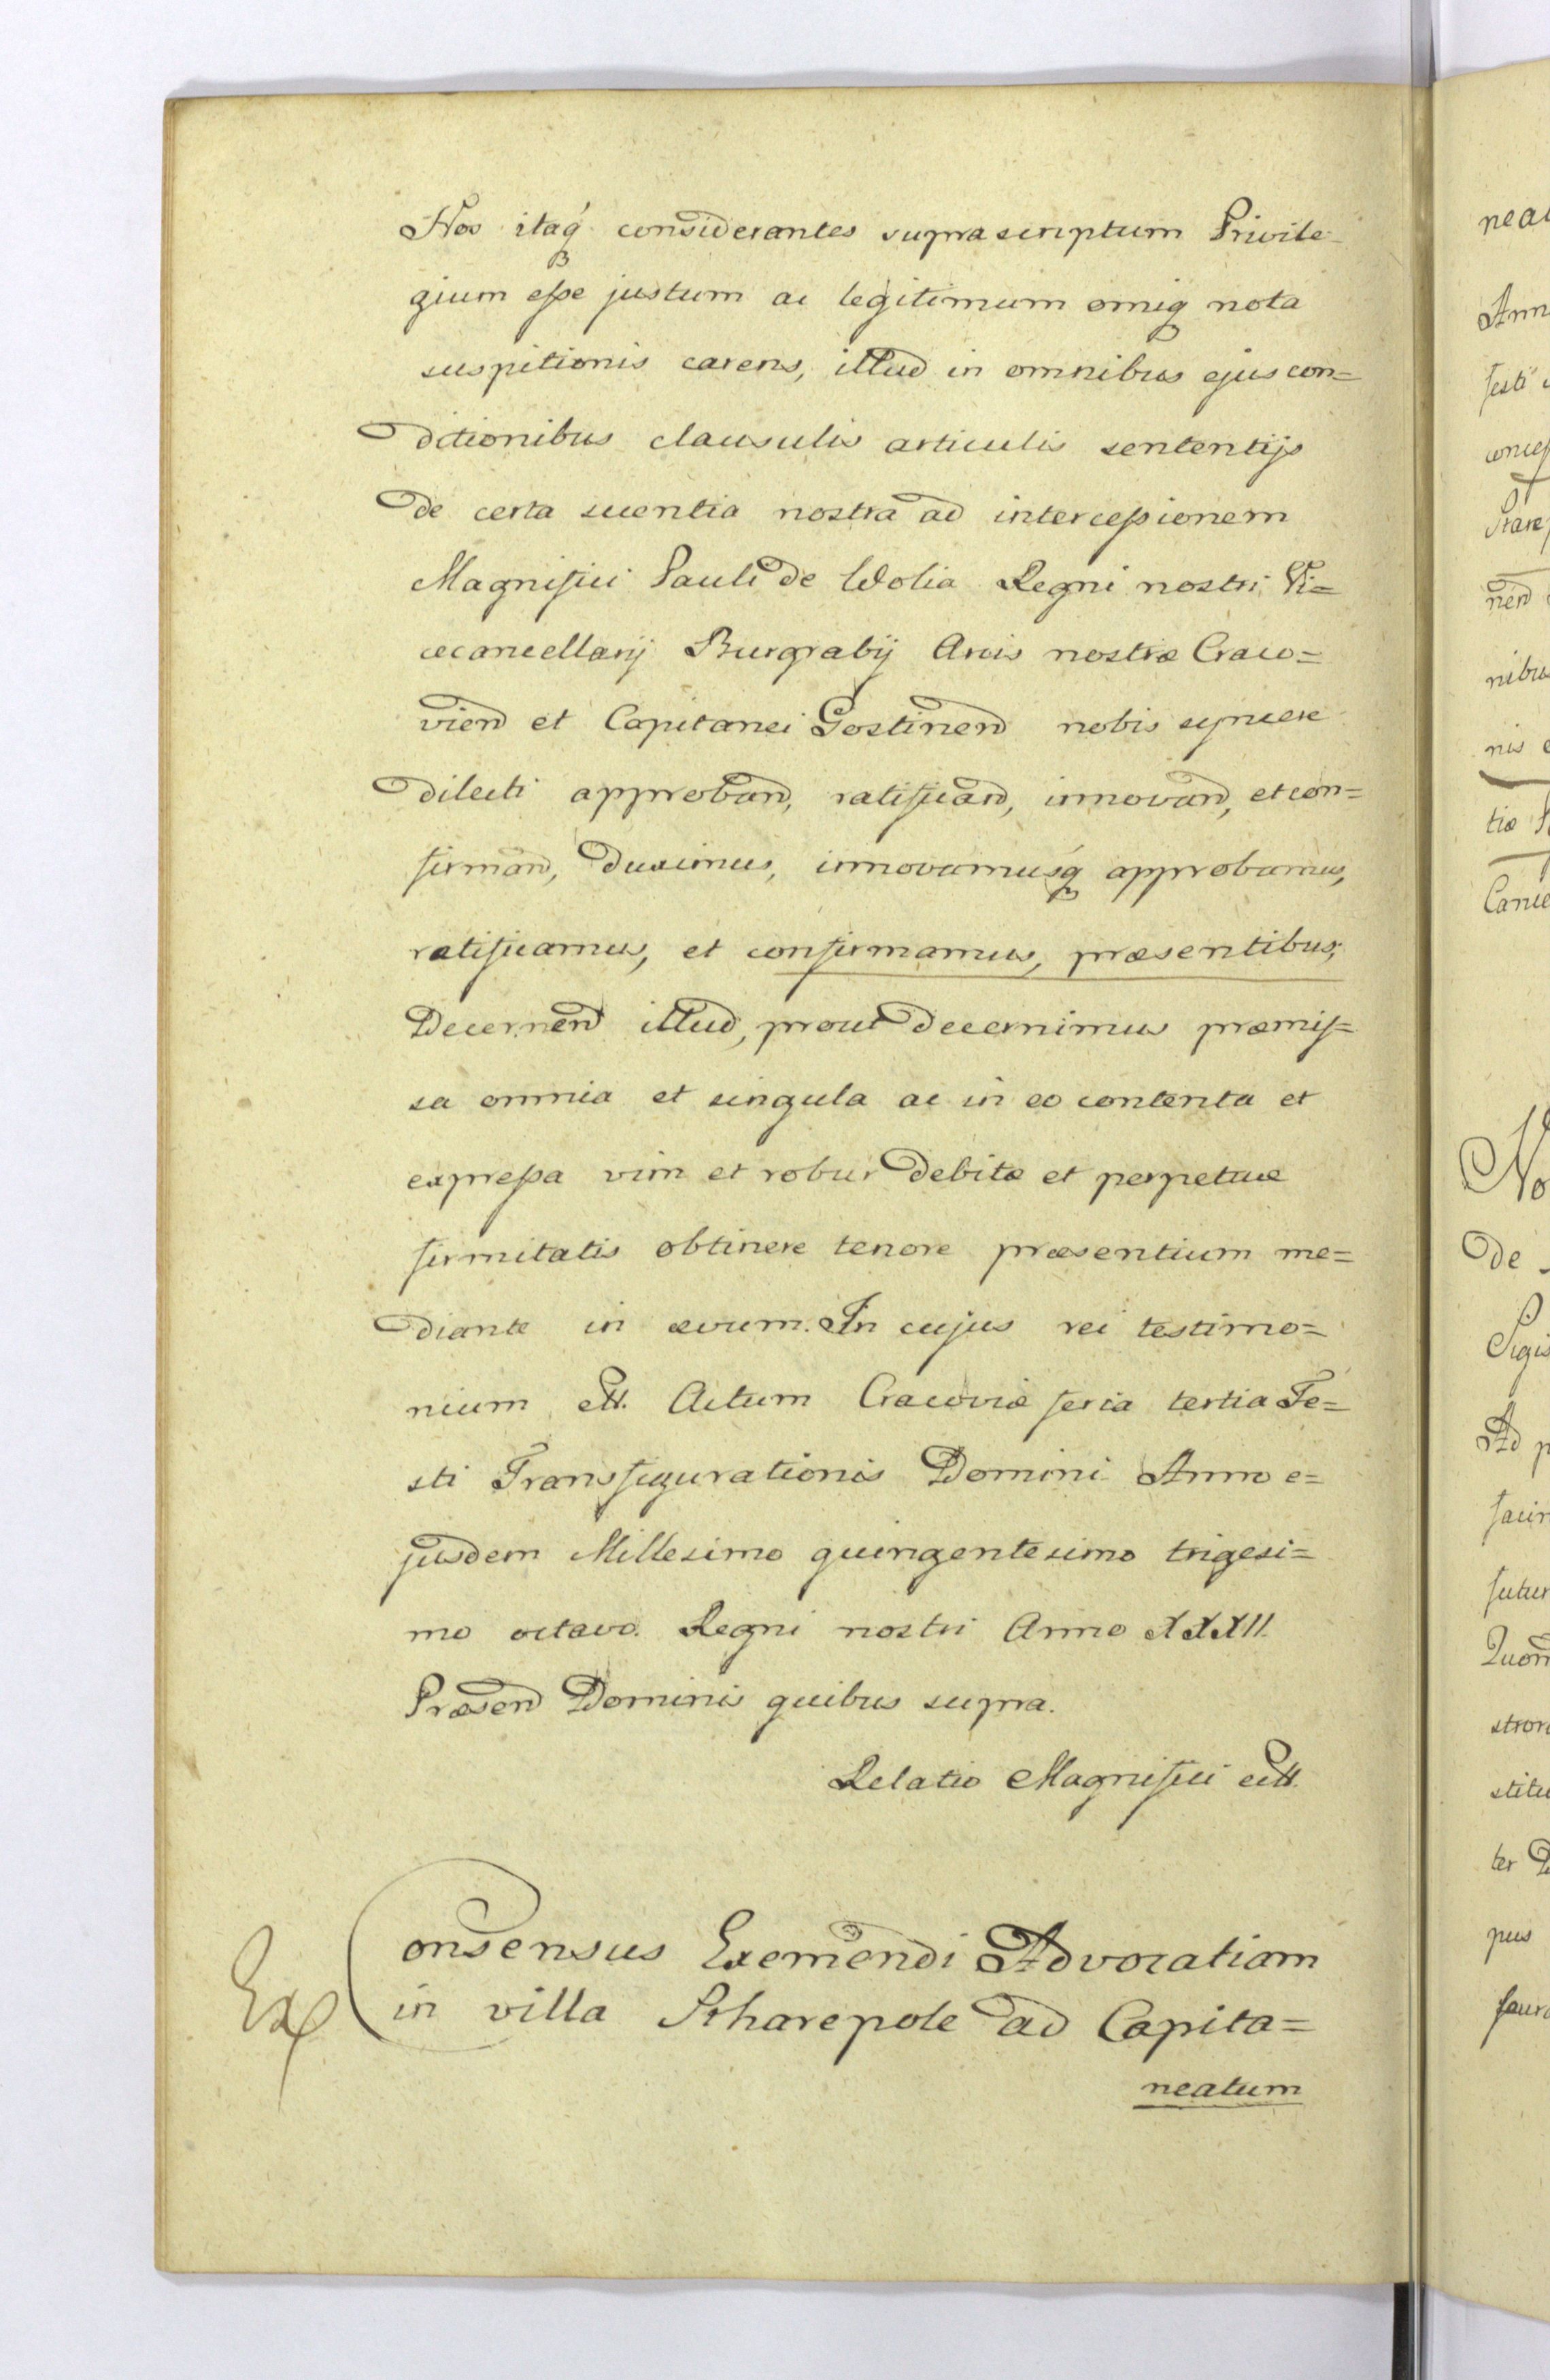 Nos itaq́ considerantes suprascriptum Privile-
gium eſse justum ac legitimum omiq nota
suspitionis carens, illud in omnibus ejus con=
ditionibus clausulis articulis sententijs
de certa scientia nostra ad interceſsionem
Magnifici Pauli de Wolia Regni nostri Vi=
cecancellarij Burgrabij Arcis nostræ Craco=
vien̄ et Capitanei Gostinen̄ nobis syncere
dilecti approban̄d, ratifican̄d, innovan̄d, et con=
firman̄d, duximus, innovamusq́ approbamus,
ratificamus, et confirmamus, præsentibus;
Decernen̄d illud, prout decernimus præmiſ=
sa omnia et singula ac in eo contenta et
expreſsa vim et robur debitæ et perpetuæ
firmitatis obtinere tenore præsentium me=
diante in ævum. In cujus rei testimo=
nium ett. Actum Cracoviæ feria tertia Fe=
sti Transfigurationis Domini Anno e=
jusdem Millesimo quingentesimo trigesi=
mo octavo. Regni nostri Anno XXXII.
Præsen̄ Dominis quibus supra.
Relatio Magnifici ett.
Consensus Exemendi Advocatiam
Ex in villa Stharepole ad Capita=
neatum
nea
Ann
festi
nibu
nis
tiæ
Canc
No
de
Sigis
Ad p
futur
Quon̄
stror
stitu
ter
pus